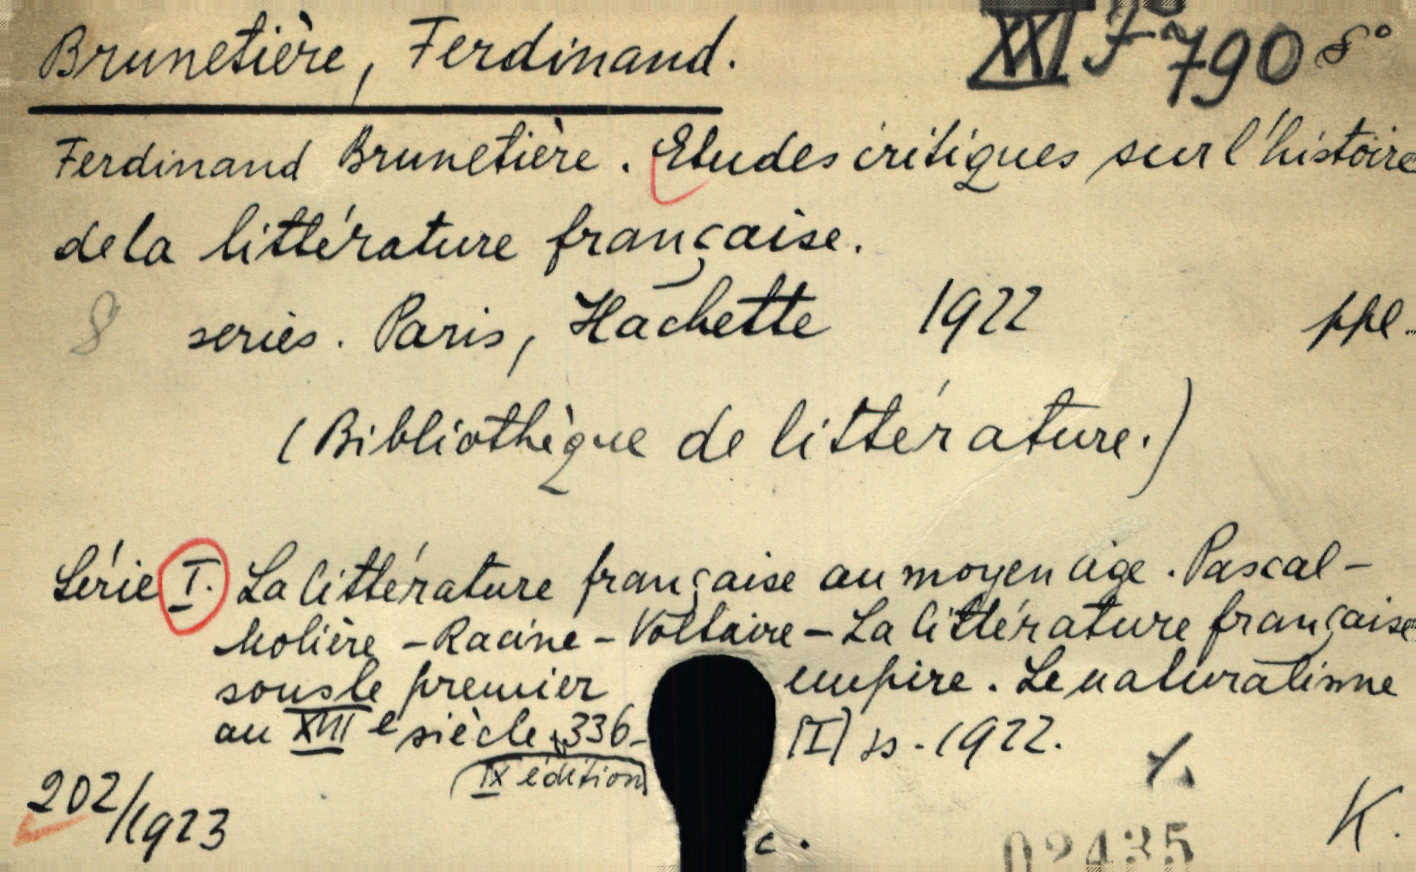 Brunetière, Ferdinand. XXI F 790 8°
Ferdinand Brunetière. Etudes critiques sur l'histoire
de la littérature française.
8 series. Paris, Hachette 1922 ppl.
(Bibliothèque de littérature.)
Série I. La littérature française au moyen age. Pascal -
Molière - Racine - Voltaire - La littérature française
sous le premier empire. Le naturalisme
au XVIIe siècle. 336 - [I] ss. 1922.
IX édition
202/1923 K.
c.
02435